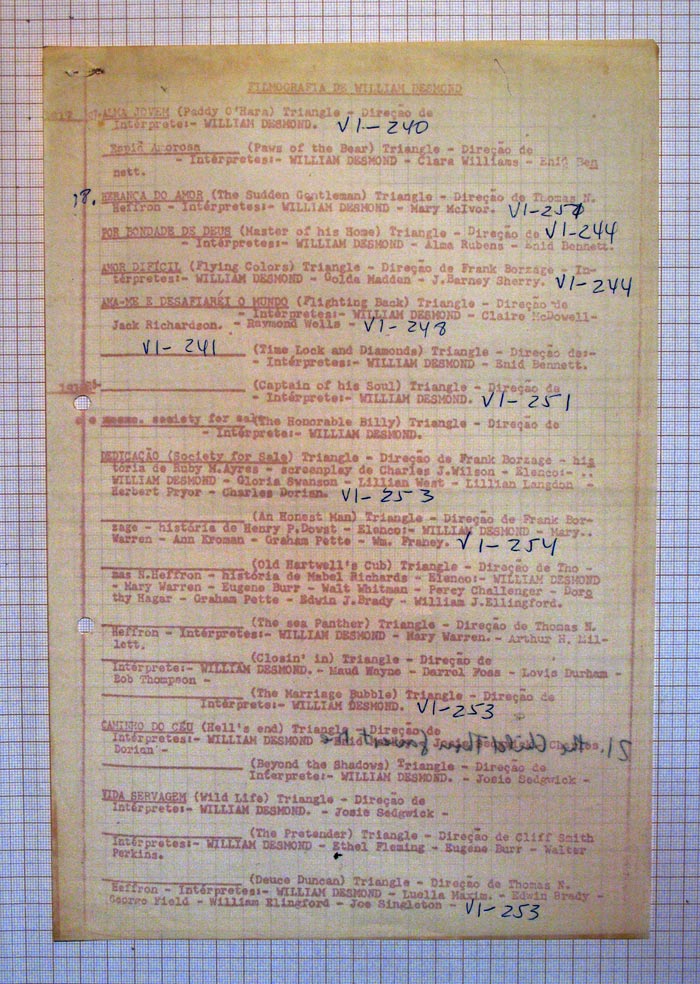 FILMOGRAFIA DE WILLIAM DESMOND
ALMA JOVEM (Paddy O'Hara) Triangle - Direção de
Intérprete:- WILLIAM DESMOND. VI-240
Espiã Amorosa (Paws of the Bear) Triangle - Direção de
- Intérpretes:- WILLIAM DESMOND - Clara Williams - Enid Ben
nett.
18. HERANÇA DO AMOR (The Sudden Gentleman) Triangle - Direção de Thomas N.
Heffron - Intérpretes:- WILLIAM DESMOND - Mary McIvor. VI-251
POR BONDADE DE DEUS (Master of his Home) Triangle - Direção de VI-244
- Intérpretes:- WILLIAM DESMOND - Alma Rubens - Enid Bennett.
AMOR DIFÍCIL (Flying Colors) Triangle - Direção de Frank Borzage - In-
térpretes:- WILLIAM DESMOND - Golda Madden - J.Barney Sherry. VI-244
AMA-ME E DESAFIAREI O MUNDO (Flighting Back) Triangle - Direção de
- Intérpretes:- WILLIAM DESMOND - Claire McDowell-
Jack Richardson. - Raymond Wells - VI-248
VI-241 (Time Lock and Diamonds) Triangle - Direção de:-
- Intérpretes:- WILLIAM DESMOND - Enid Bennett.
(Captain of his Soul) Triangle - Direção de
- Intérpretes:- WILLIAM DESMOND. VI-251
society for sale (The Honorable Billy) Triangle - Direção de
- Intérprete:- WILLIAM DESMOND.
DEDICAÇÃO (Society for Sale) Triangle - Direção de Frank Borzage - his
tória de Ruby M.Ayres - screenplay de Charles J.Wilson - Elenco:- ..
WILLIAM DESMOND - Gloria Swanson - Lillian West - Lillian Langdon -
Herbert Pryor - Charles Dorian. VI-253
(An Honest Man) Triangle - Direção de Frank Bor-
zage - história de Henry P.Dowst - Elenco:- WILLIAM DESMOND - Mary..
Warren - Ann Kroman - Graham Pette - Wm. Franey. VI-254
(Old Hartwell's Cub) Triangle - Direção de Tho-
mas N.Heffron - história de Mabel Richards - Elenco:- WILLIAM DESMOND
- Mary Warren - Eugene Burr - Walt Whitman - Percy Challenger - Doro
thy Hagar - Graham Pette - Edwin J.Brady - William J.Ellingford.
(The sea Panther) Triangle - Direção de Thomas N.
Heffron - Intérpretes:- WILLIAM DESMOND - Mary Warren. - Arthur H. Mil-
lett.
(Closin' in) Triangle - Direção de
Intérpretes:- WILLIAM DESMOND. - Maud Wayne - Darrel Foss - Lovis Durham -
Bob Thompson -
(The Marriage Bubble) Triangle - Direção de
Intérpretes:- WILLIAM DESMOND. VI-253
CAMINHO DO CÉU (Hell's end) Triangle - Direção de
Intérpretes:- WILLIAM DESMOND
Dorian -
(Beyond the Shadows) Triangle - Direção de
Intérprete:- WILLIAM DESMOND. - Josie Sedgwick -
VIDA SERVAGEM (Wild Life) Triangle - Direção de
Intérprete:- WILLIAM DESMOND. - Josie Sedgwick -
(The Pretender) Triangle - Direção de Cliff Smith
Intérpretes:- WILLIAM DESMOND - Ethel Fleming - Eugene Burr - Walter
Perkins.
(Deuce Duncan) Triangle - Direção de Thomas N.
Heffron - Intérpretes:- WILLIAM DESMOND - Luella Maxim. - Edwin Brady -
George Field - William Elingford - Joe Singleton - VI-253